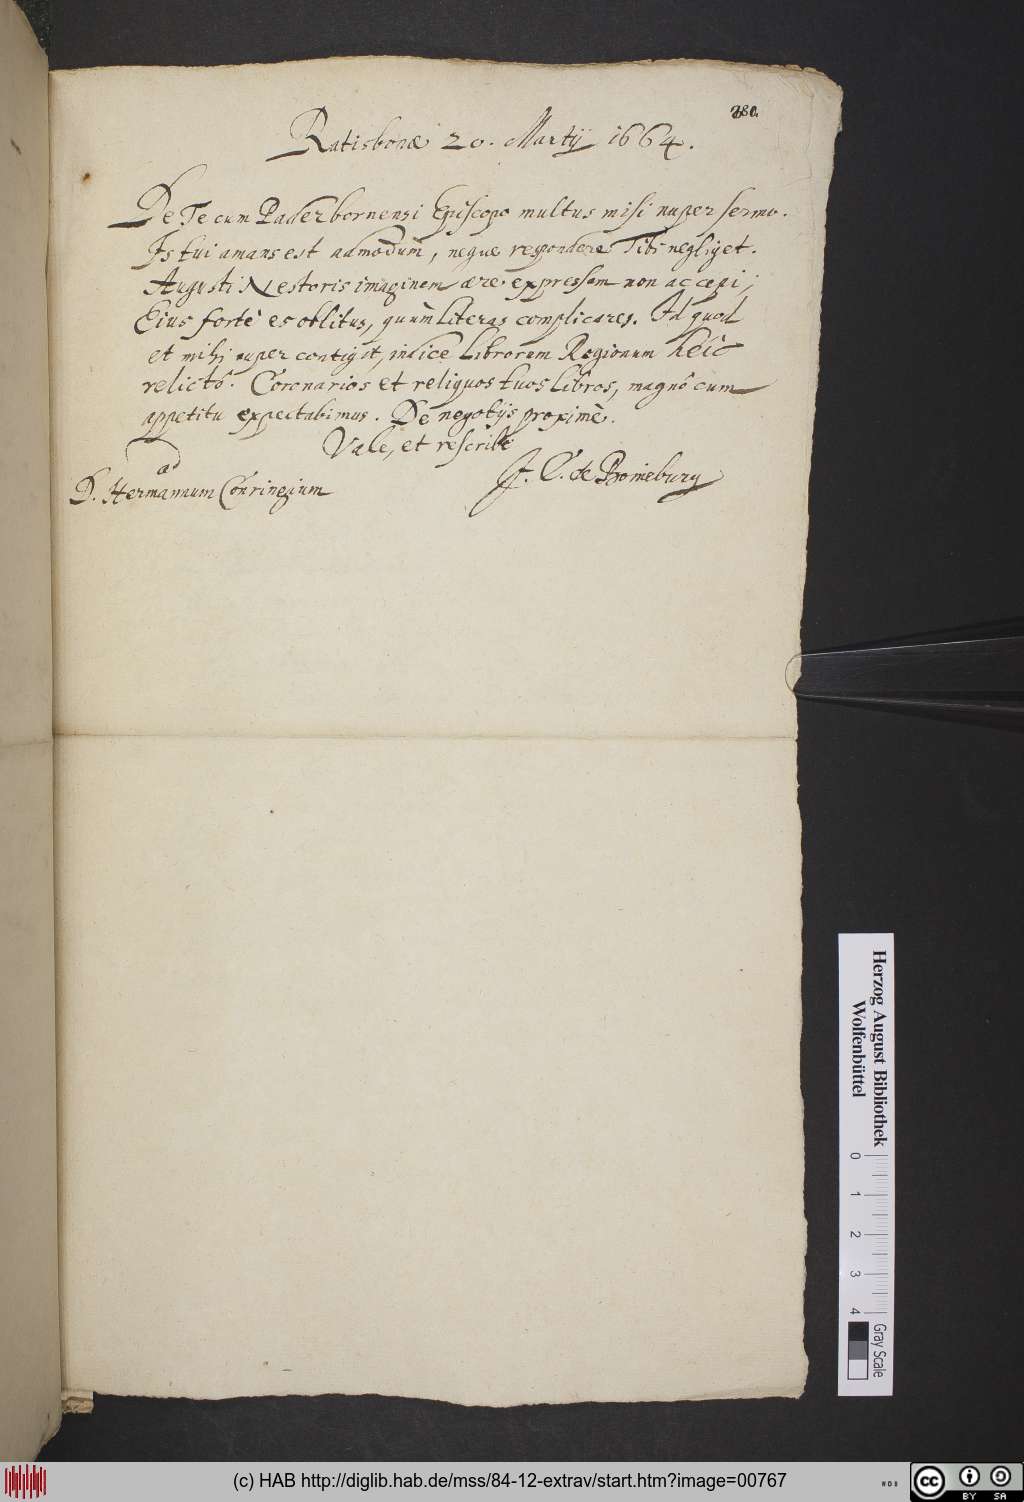 380.
Ratisbonæ 20. Martij 1664.
De Te cum Paderbornensi Episcopo multus mihi nuper sermo.
Is tui amans est admodùm, neque respondere Tibi negliget.
Augusti Nestoris imaginem ære expressam non accepi;
Eius fortè es oblitus, quum literas complicares. Id quod
et mihi nuper contigit, indice Librorum Regionum heic
relictô. Coronarios et reliquos tuos libros, magnô cum
appetitu expectabimus. De negotijs proximè.
Vale, et rescribe
ad
D. Hermannum Conringium
J. C. de Boineburg
Herzog August Bibliothek
Wolfenbüttel
0 1 2 3 4
Gray Scale
(c) HAB http://diglib.hab.de/mss/84-12-extrav/start.htm?image=00767
cc BY SA